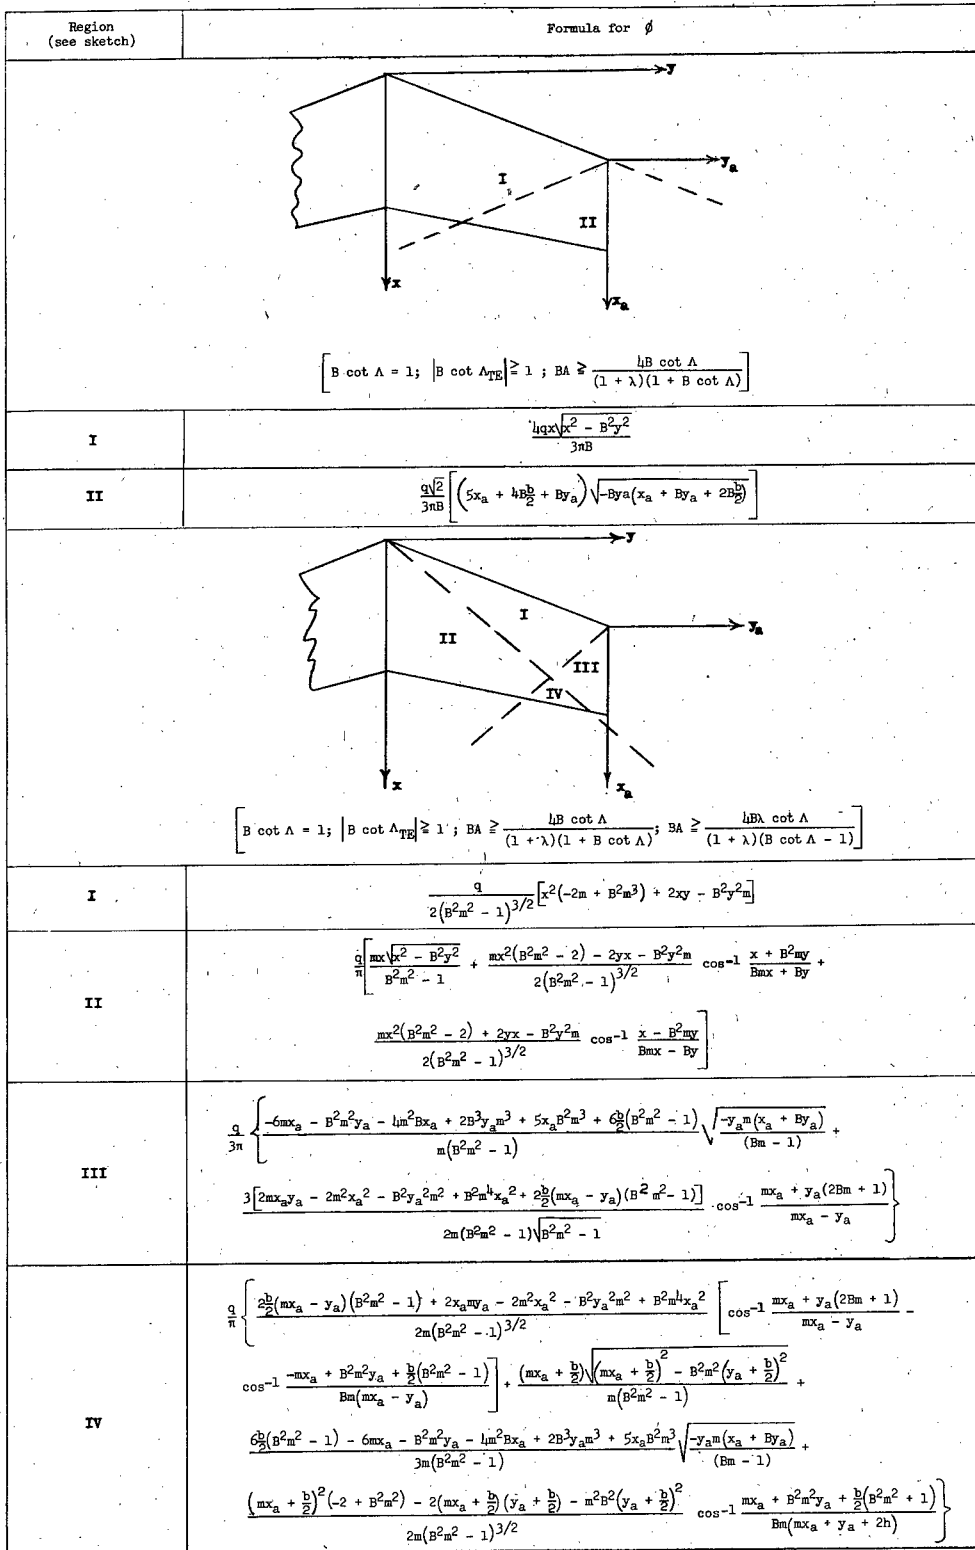 Region
(see sketch)
Formula for ϕ
y
y_a
I
II
x
x_a
[B cot Λ = 1; |B cot Λ_TE| ≧ 1 ; BA ≧ 4B cot Λ / (1 + λ)(1 + B cot Λ)]
I
4qx√(x² - B²y²) / 3πB
II
q√2 / 3πB [(5x_a + 4B b/2 + By_a) √(-Bya(x_a + By_a + 2B b/2))]
y
I
y_a
II
III
IV
x
x_a
[B cot Λ = 1; |B cot Λ_TE| ≧ 1 ; BA ≧ 4B cot Λ / (1 + λ)(1 + B cot Λ); BA ≧ 4Bλ cot Λ / (1 + λ)(B cot Λ - 1)]
I
q / 2(B²m² - 1)^3/2 [x²(-2m + B²m³) + 2xy - B²y²m]
II
q/π [mx√(x² - B²y²) / B²m² - 1 + mx²(B²m² - 2) - 2yx - B²y²m / 2(B²m² - 1)^3/2 cos⁻¹ x + B²my / Bmx + By +
mx²(B²m² - 2) + 2yx - B²y²m / 2(B²m² - 1)^3/2 cos⁻¹ x - B²my / Bmx - By]
III
q/3π {-6mx_a - B²m²y_a - 4m²Bx_a + 2B³y_am³ + 5x_aB²m³ + 6 b/2 (B²m² - 1) / m(B²m² - 1) √(-y_am(x_a + By_a) / (Bm - 1)) +
3[2mx_ay_a - 2m²x_a² - B²y_a²m² + B²m⁴x_a² + 2 b/2 (mx_a - y_a)(B² m² - 1)] / 2m(B²m² - 1)√(B²m² - 1) cos⁻¹ mx_a + y_a(2Bm + 1) / mx_a - y_a}
IV
q/π {2 b/2 (mx_a - y_a)(B²m² - 1) + 2x_amy_a - 2m²x_a² - B²y_a²m² + B²m⁴x_a² / 2m(B²m² - 1)^3/2 [cos⁻¹ mx_a + y_a(2Bm + 1) / mx_a - y_a -
cos⁻¹ -mx_a + B²m²y_a + b/2 (B²m² - 1) / Bm(mx_a - y_a)] + (mx_a + b/2)√((mx_a + b/2)² - B²m²(y_a + b/2)²) / m(B²m² - 1) +
6 b/2 (B²m² - 1) - 6mx_a - B²m²y_a - 4m²Bx_a + 2B³y_am³ + 5x_aB²m³ / 3m(B²m² - 1) √(-y_am(x_a + By_a) / (Bm - 1)) +
(mx_a + b/2)²(-2 + B²m²) - 2(mx_a + b/2)(y_a + b/2) - m²B²(y_a + b/2)² / 2m(B²m² - 1)^3/2 cos⁻¹ mx_a + B²m²y_a + b/2 (B²m² + 1) / Bm(mx_a + y_a + 2h)}